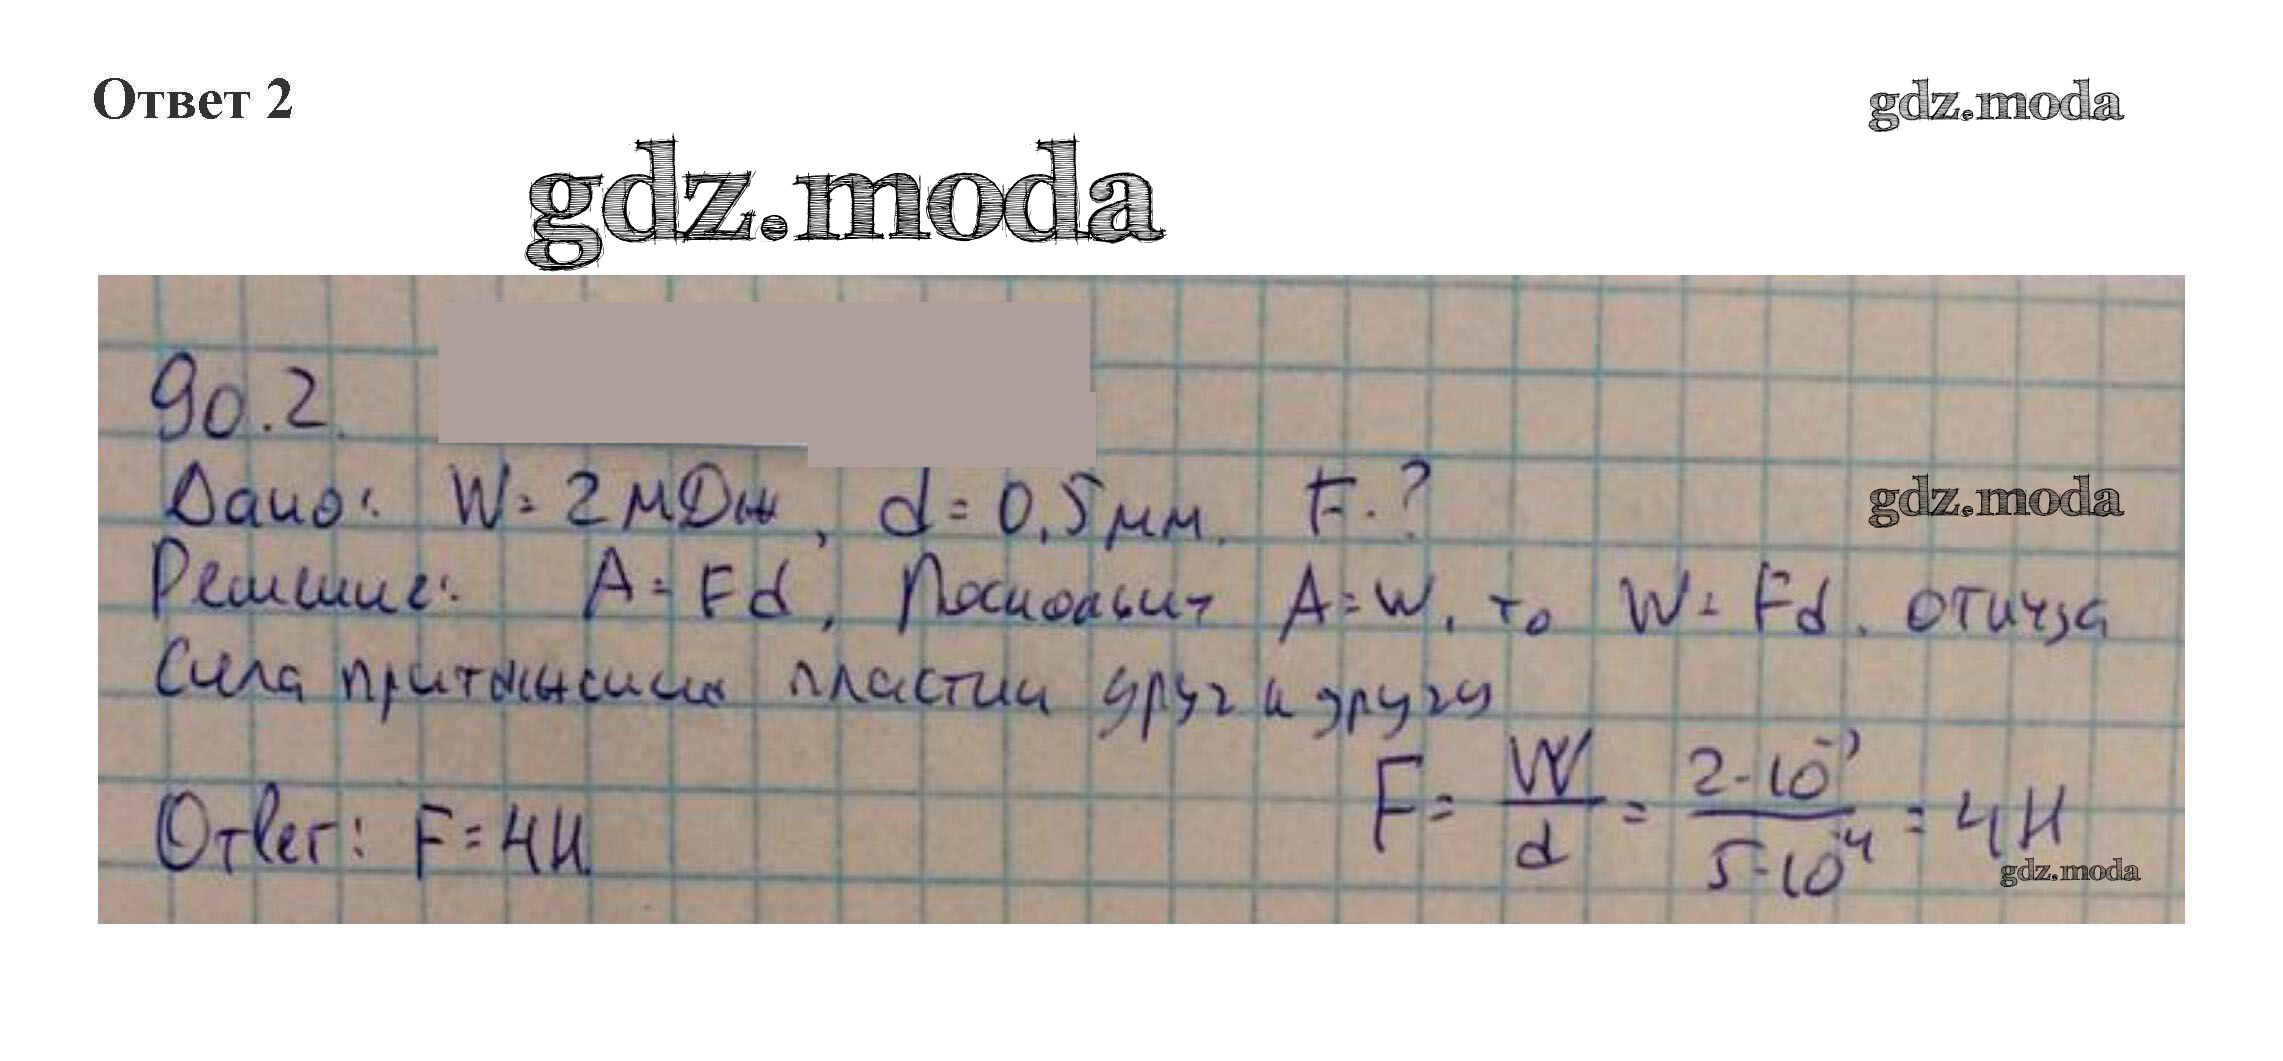 Ответ 2
gdz.moda
gdz.moda
90.2.
Дано: W = 2 мДж, d = 0,5 мм. F - ?
gdz.moda
Решение: A = Fd, Поскольку A = W, то W = Fd. отсюда
Сила притяжения пластин друг к другу
F = W/d = 2·10⁻³/5·10⁻⁴ = 4 Н
Ответ: F = 4 Н.
gdz.moda